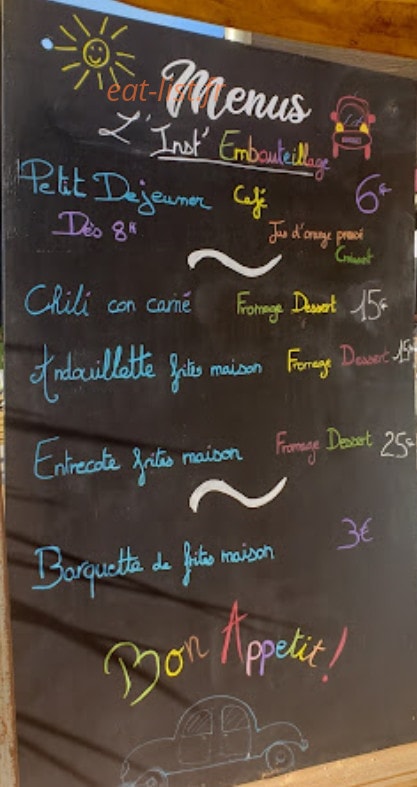 eat-list.fr
Menus
L'Inst' Embouteillage
Petit Dejeuner Café 6€
Dès 8h Jus d'orange pressé
Croissant
Chili con carné Fromage Dessert 15€
Andouillette frites maison Fromage Dessert 15€
Entrecote frites maison Fromage Dessert 25€
Barquette de frites maison 3€
Bon Appetit!